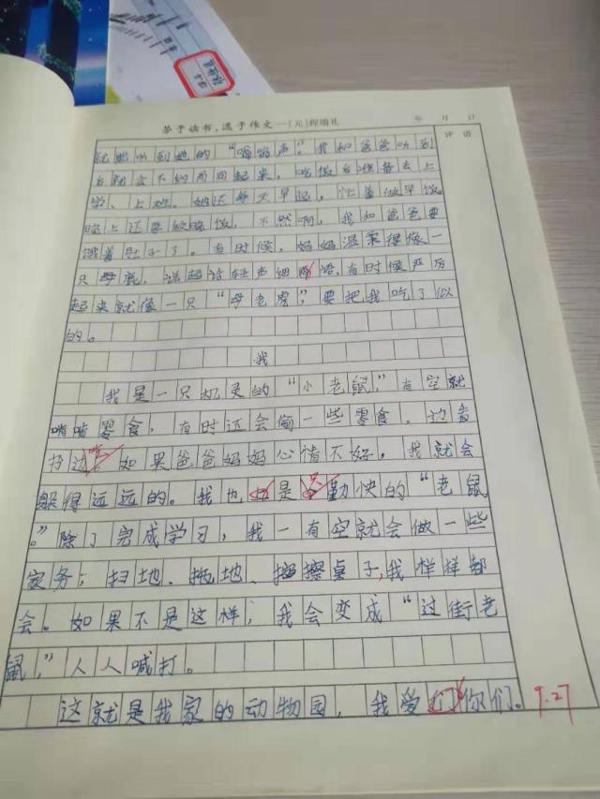 善于读书,逞于作文——(元)程端礼
年 月 日
评语
就能听到她的“嗡嗡声”。我和爸爸听到
后就会不约而同起来,吃饭后准备去上
学、上班。妈妈还每天早起,忙着做早饭
晚上还要做晚饭,不然啊,我和爸爸要
饿着肚子了。有时候,妈妈温柔得像一
只母鹿,说起话轻声细语,有时候严厉
起来就像一只“母老虎”,要把我吃了似
的。
我
我是一只机灵的“小老鼠”,有空就
啃啃零食,有时还会偷一些零食,边看
边吃。如果爸爸妈妈心情不好,我就会
躲得远远的。我也是勤快的“老鼠
”。除了完成学习,我一有空就会做一些
家务:扫地、拖地、擦桌子,我样样都
会。如果不是这样,我会变成“过街老
鼠”,人人喊打。
这就是我家的动物园,我爱你们。
9.27